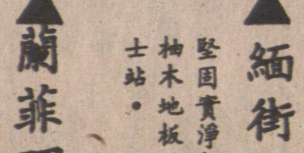 ▲緬街
堅固實淨
柚木地板
士站●
▲蘭菲